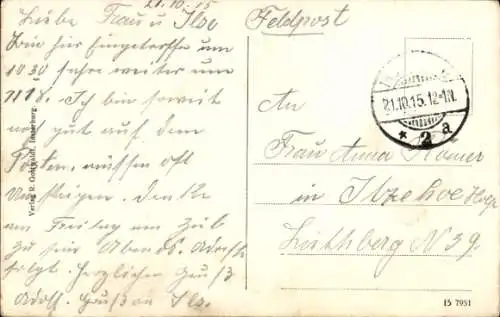 21.10.15
Liebe Frau u Ilse
Bin hier eingetroffen um
10 30 fahre weiter um
11 18. Ich bin soweit
noch gut auf dem
Posten, müssen oft
Umsteigen. Denke
am Freitag am Ziel
zu sein Abends. Adresse
folgt. Herzlichen Gruß
Adolf. Gruß an Ilse.
Verlag R. Insterburg.
Feldpost
21.10.15. 12-1N.
* 2 a
An
Frau Anna Römer
in Itzehoe Holst
Lüthberg N 39.
IS 7951